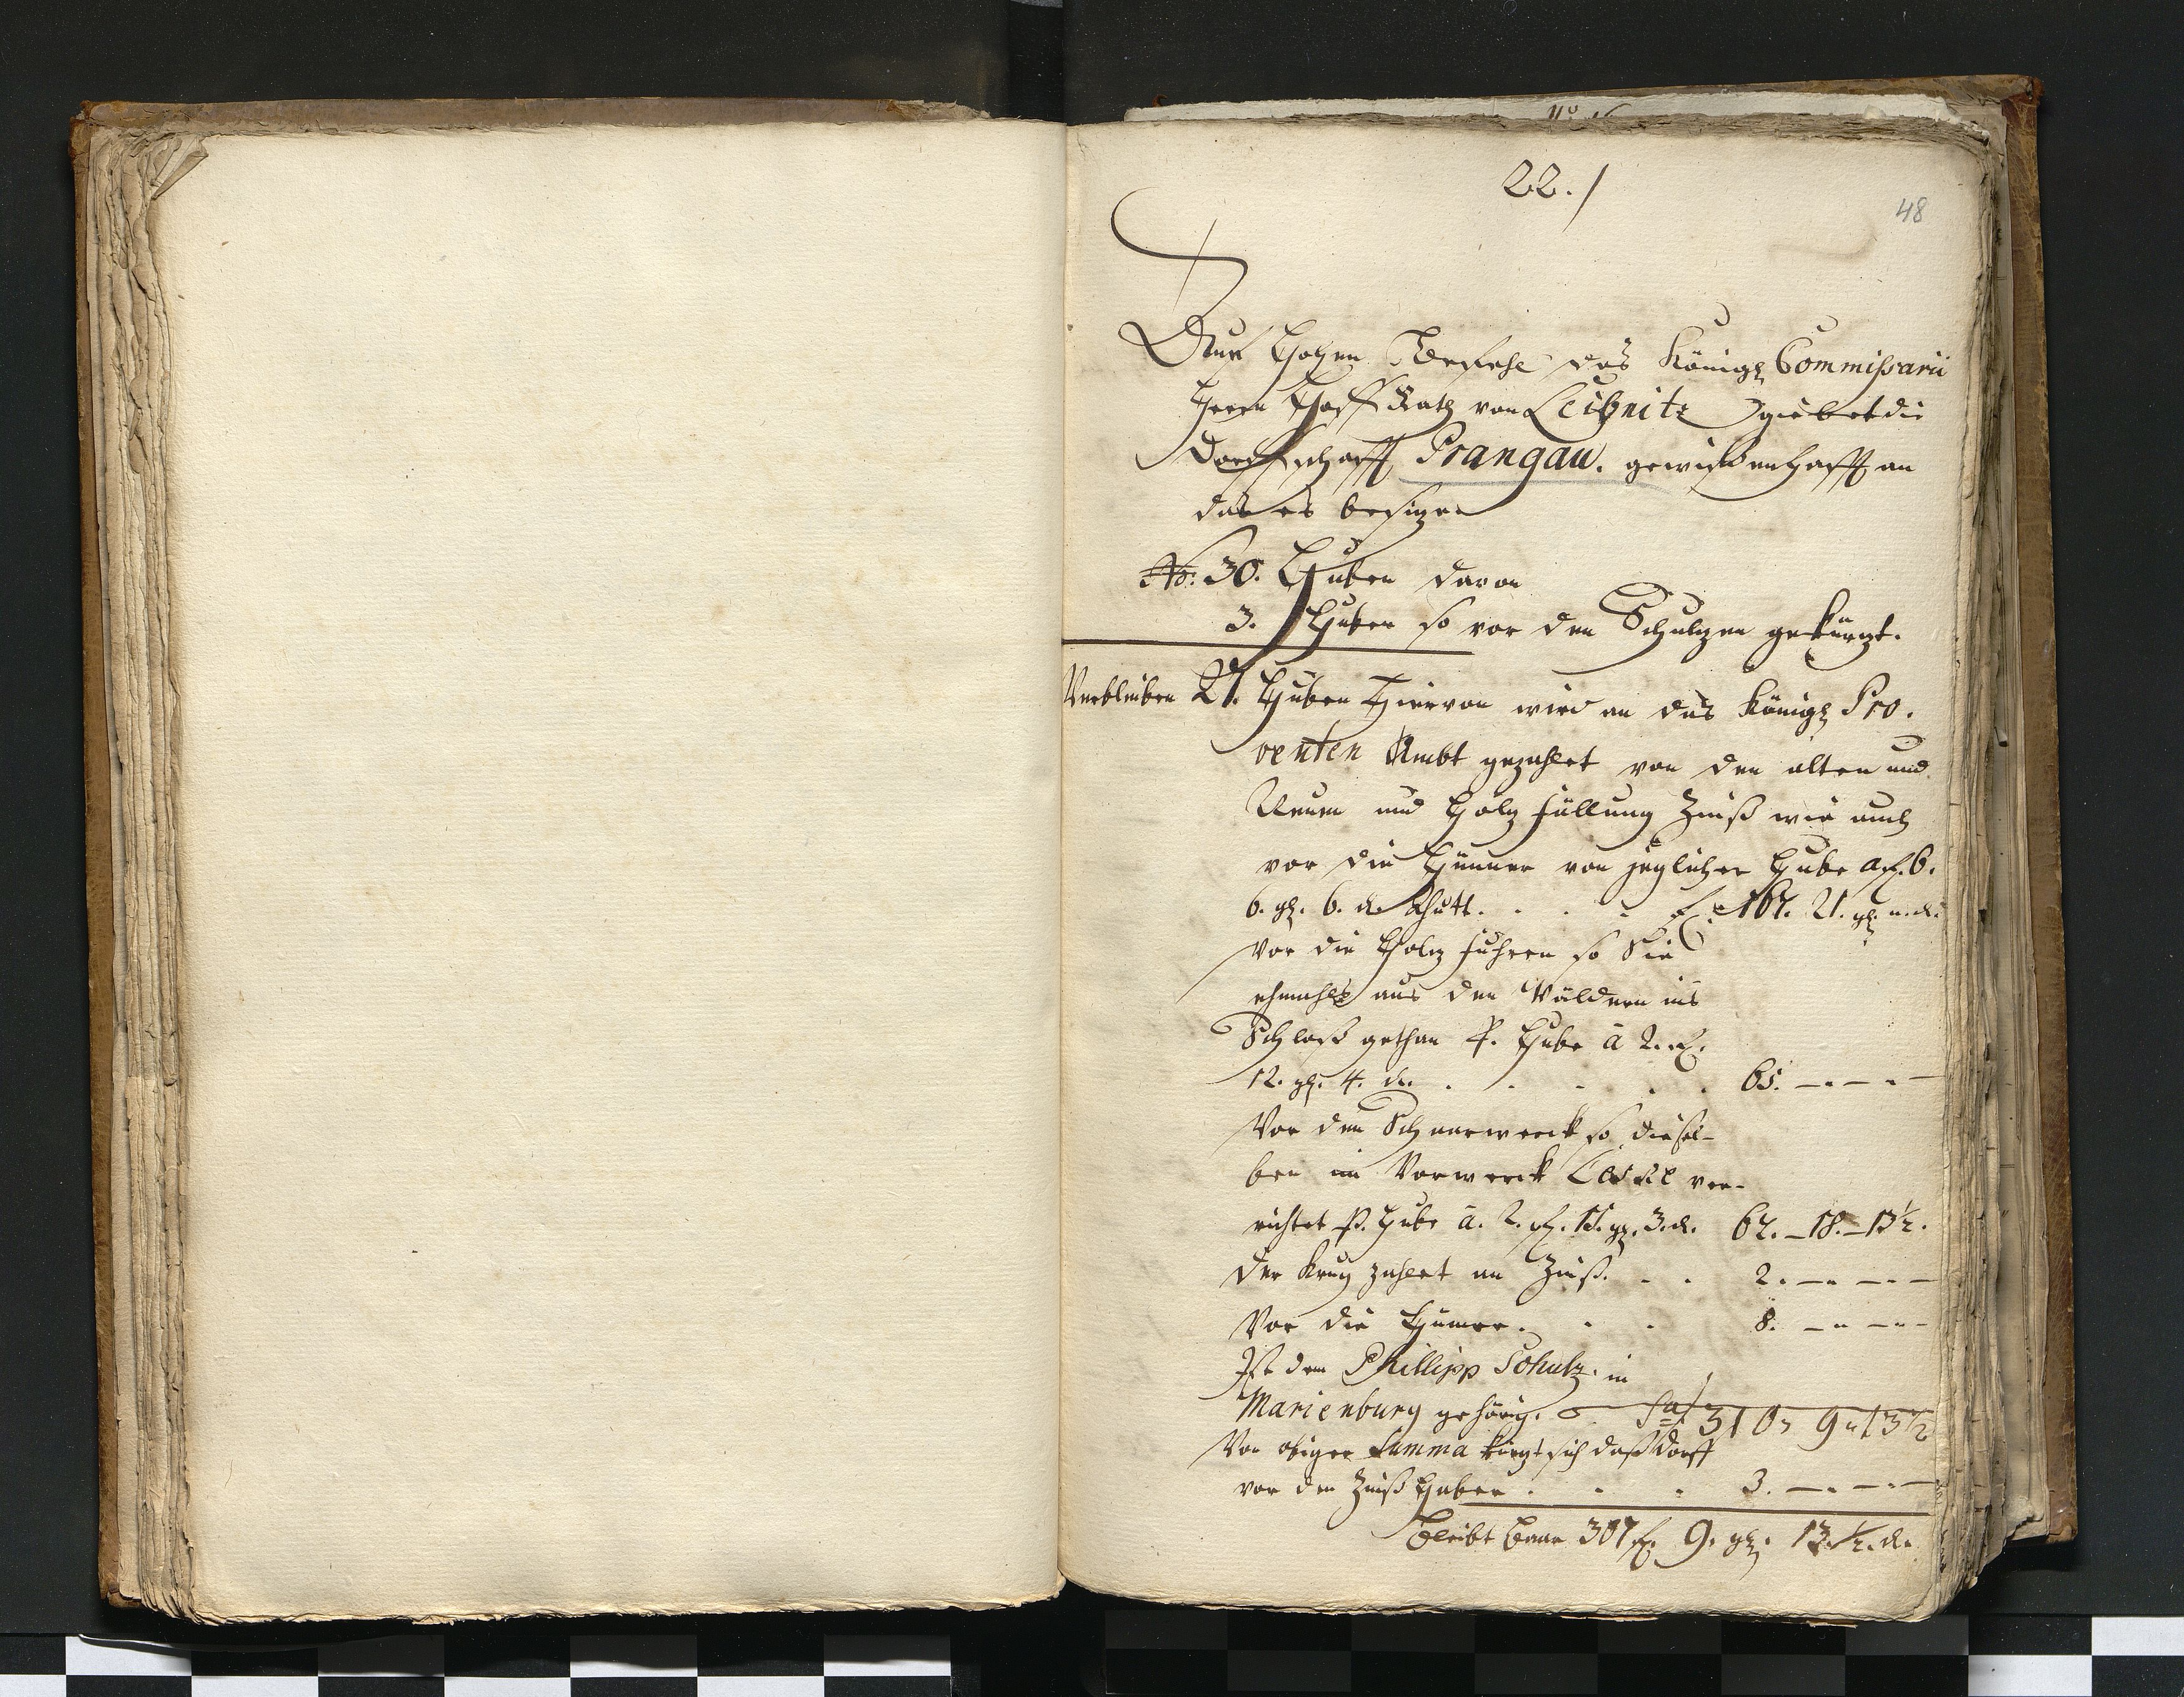 22./
48
Auf hohen Befehl des Königl Commissarii
Herrn Hoff Rath von Leibnitz giebet die
Dorffschafft Prangau. gewissenhafft an
das es besizen
No: 30. Huben davon
3. Huben so vor den Schulzen gekürzt.
Verbleiben 27. Huben Hiervon wird an das Königl Pro.
venten Ambt gezahlet von den alten und
Neuen und Holz fällung Zinß wie auch
vor die Hünner von jeglicher Hube a f. 6.
6. gl. 6. d. thutt. f. 167. 21. gl. d.
Vor die Holz fuhren so Sie
ehmahls aus den Wäldern ins
Schloß gethan P. Hube a 2. f.
12. gl. 4. d. 65. — — —
Vor den Scharwerck so diesel-
ben im Vorwerck ver-
richtet P. Hube a. 2. f. 15. gl. 3. d. 67. — 18. — 13½.
Der Krug zahlet an Zinß. 2. — — —
Vor die Hünner. 8. — — —
Ist dem Phillipp Schulz. in
Marienburg gehörig. Sa 310 „ 9 „ 13½
Von obiger Summa kürzt sich daß Dorff
vor den Zinß Haber. 3. — — —
Bleibt Baar 307 f. 9. gl. 13. ½. d.